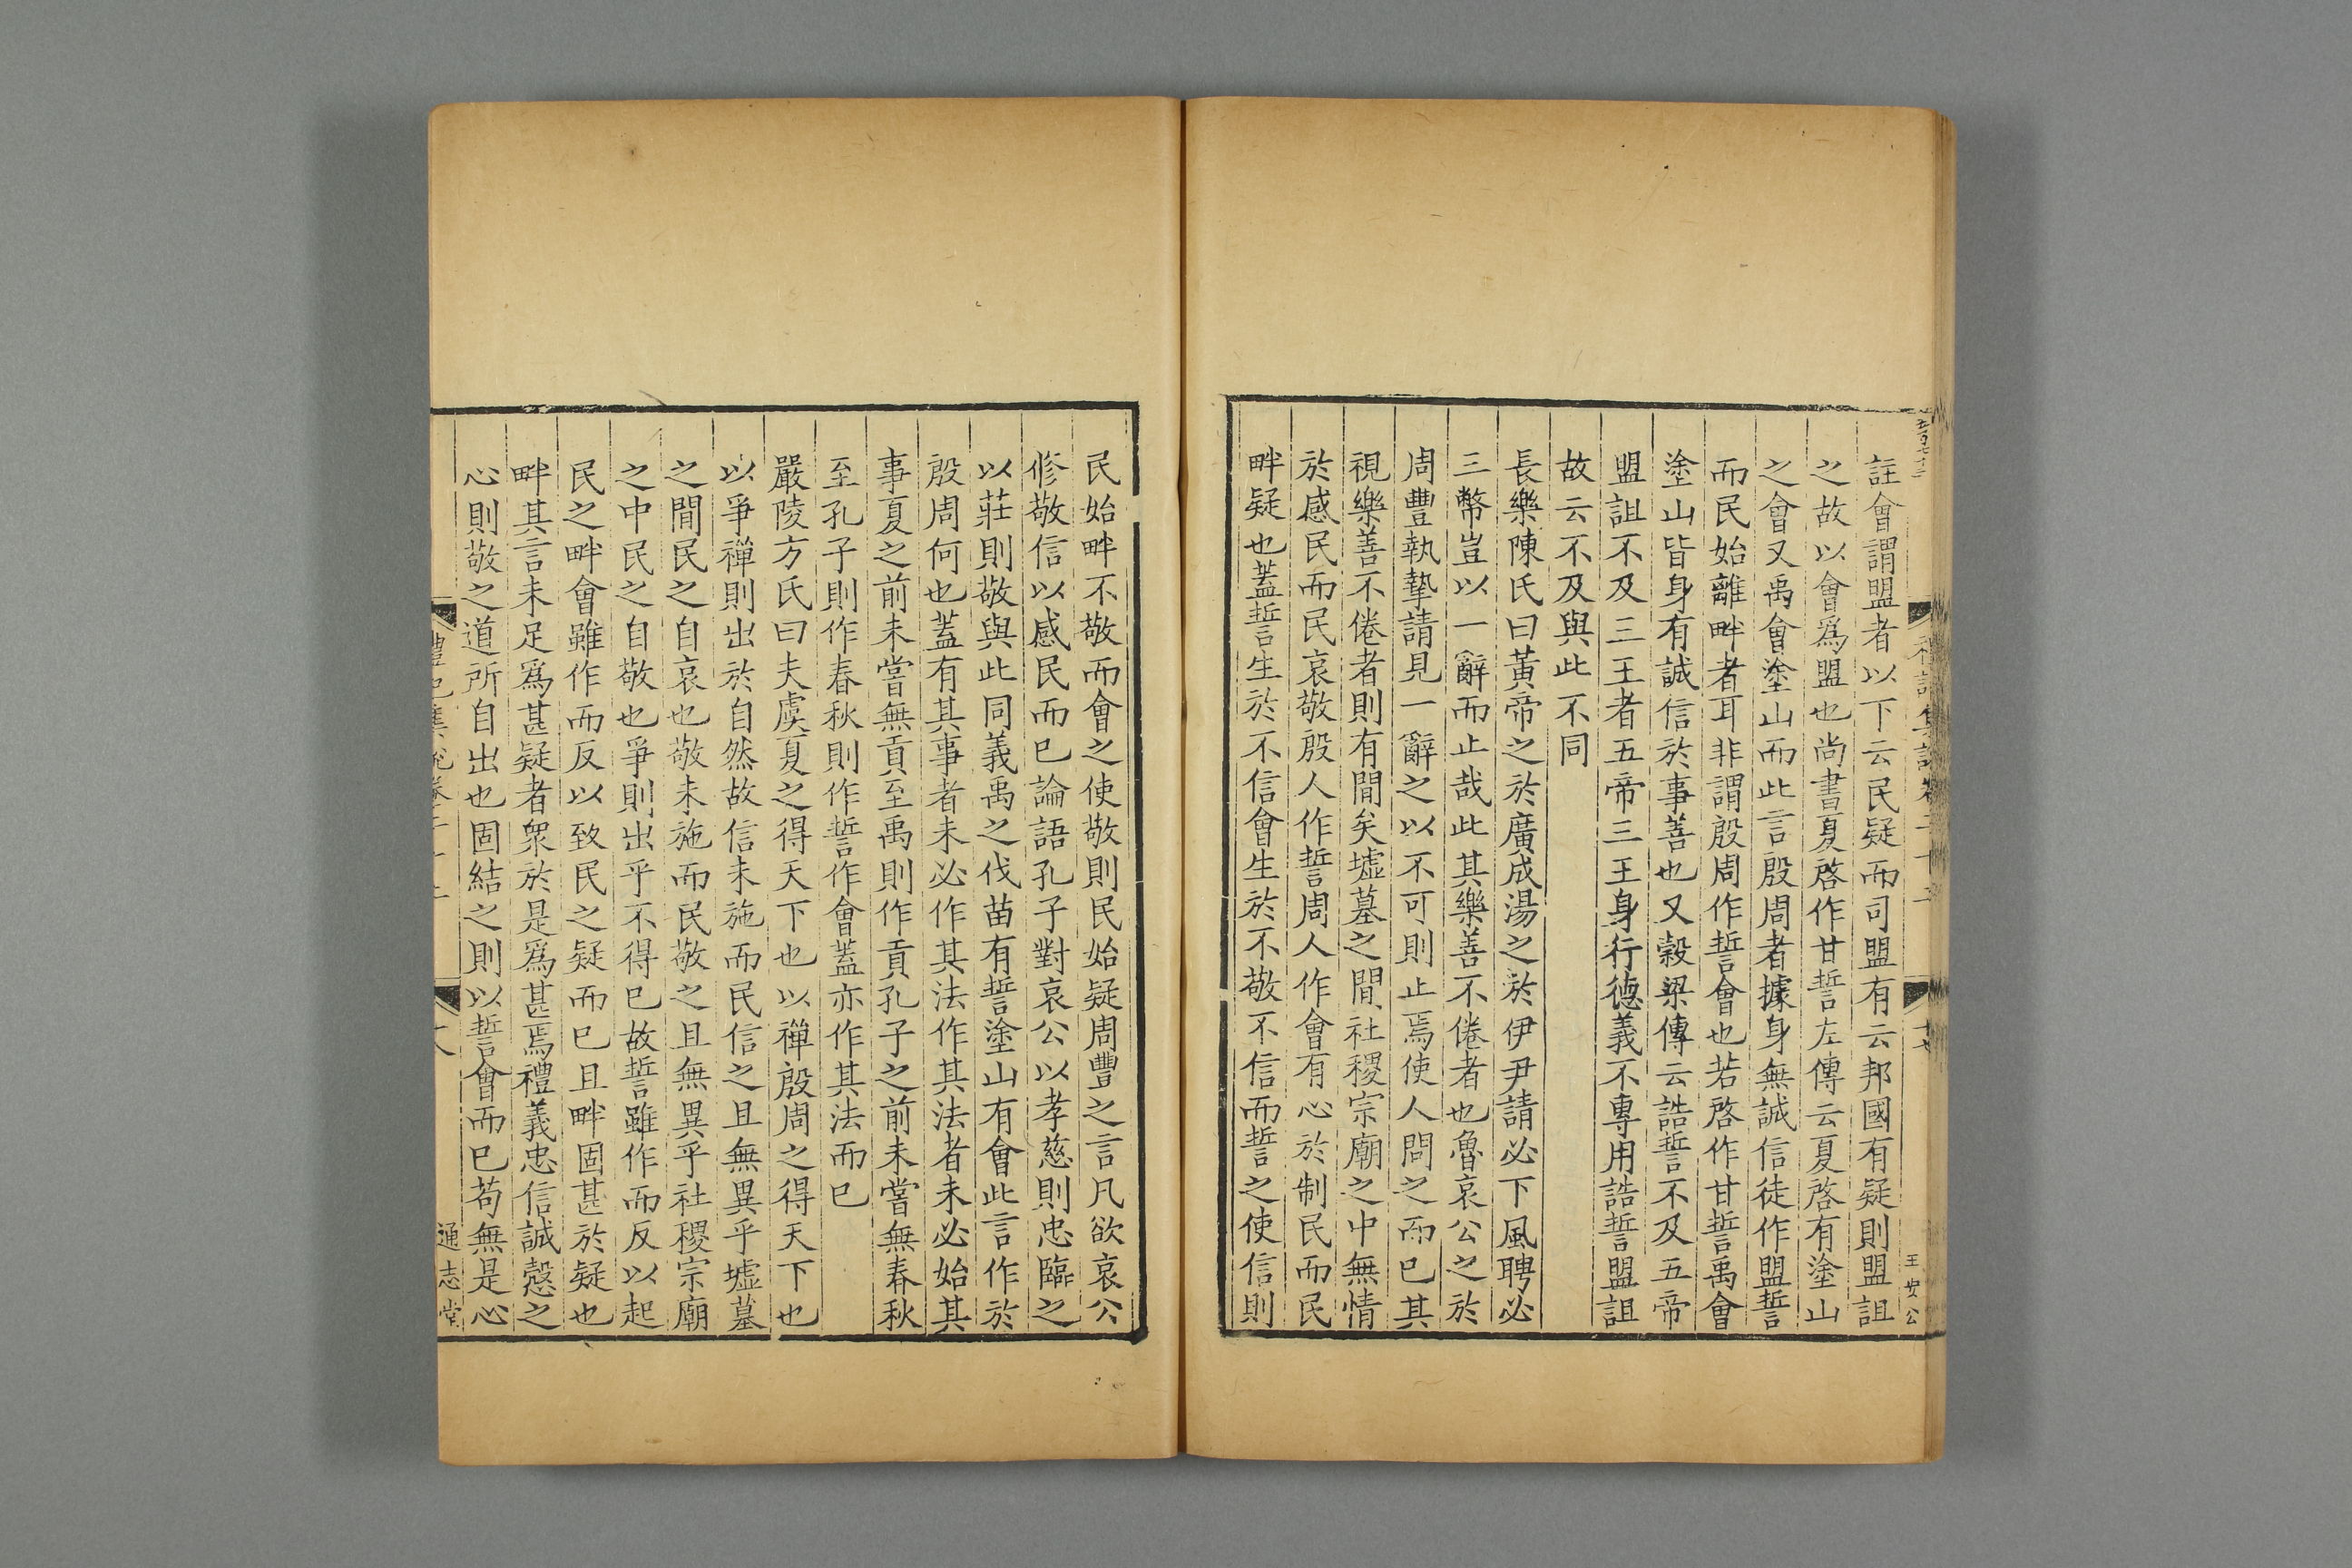 註會謂盟者以下云民疑而司盟有云邦國有疑則盟詛
之故以會爲盟也尚書夏啓作甘誓左傳云夏啓有塗山
之會又禹會塗山而此言殷周者據身無誠信徒作盟誓
而民始離畔者耳非謂殷周作誓會也若啓作甘誓禹會
塗山皆身有誠信於事善也又穀梁傳云誥誓不及五帝
盟詛不及三王者五帝三王身行德義不專用誥誓盟詛
故云不及與此不同
長樂陳氏曰黃帝之於廣成湯之於伊尹請必下風聘必
三幣豈以一辭而止哉此其樂善不倦者也魯哀公之於
周豐執摯請見一辭之以不可則止焉使人問之而已其
視樂善不倦者則有間矣墟墓之間社稷宗廟之中無情
於感民而民哀敬殷人作誓周人作會有心於制民而民
畔疑也蓋誓生於不信會生於不敬不信而誓之使信則
王安公
民始畔不敬而會之使敬則民始疑周豐之言凡欲哀公
修敬信以感民而已論語孔子對哀公以孝慈則忠臨之
以莊則敬與此同義禹之伐苗有誓塗山有會此言作於
殷周何也蓋有其事者未必作其法作其法者未必始其
事夏之前未嘗無貢至禹則作貢孔子之前未嘗無春秋
至孔子則作春秋則作誓作會蓋亦作其法而已
嚴陵方氏曰夫虞夏之得天下也以禪殷周之得天下也
以爭禪則出於自然故信未施而民信之且無異乎墟墓
之間民之自哀也敬未施而民敬之且無異乎社稷宗廟
之中民之自敬也爭則出乎不得已故誓雖作而反以起
民之畔會雖作而反以致民之疑而已且畔固甚於疑也
畔其言未足爲甚疑者衆於是爲甚焉禮義忠信誠慤之
心則敬之道所自出也固結之則以誓會而已苟無是心
通志堂